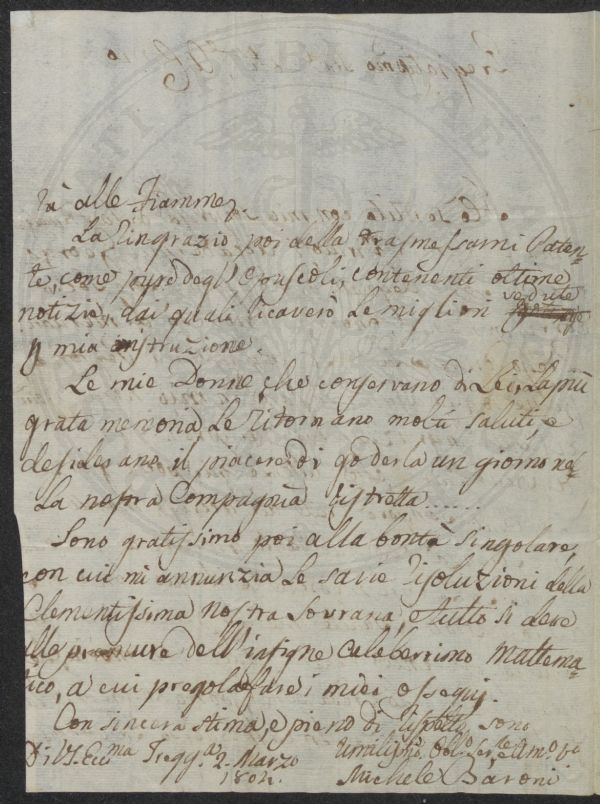 tà alle Fiamme.
La ringrazio poi della trasmessami Paten-
te, come pure degl'Opuscoli, contenenti ottime
notizie, dai quali ricaverò le migliori vedute
p mia instruzione.
Le mie Donne che conservano di Lei, la più
grata memoria Le ritornano molti saluti, e
desiderano il piacere di goderla un giorno nel-
la nostra Compagnia ristretta......
Sono gratissimo poi alla bontà singolare,
con cui mi annunzia le savie risoluzioni della
Clementissima nostra Sovrana, e tutto si deve
alle premure dell'insigne celeberrimo Mattema-
tico, a cui pregola fare i miei ossequi.
Con sincera stima, e pieno di rispetto sono
Di V.S. Ecc.ma 2. Marzo
1802.
Michele Baroni